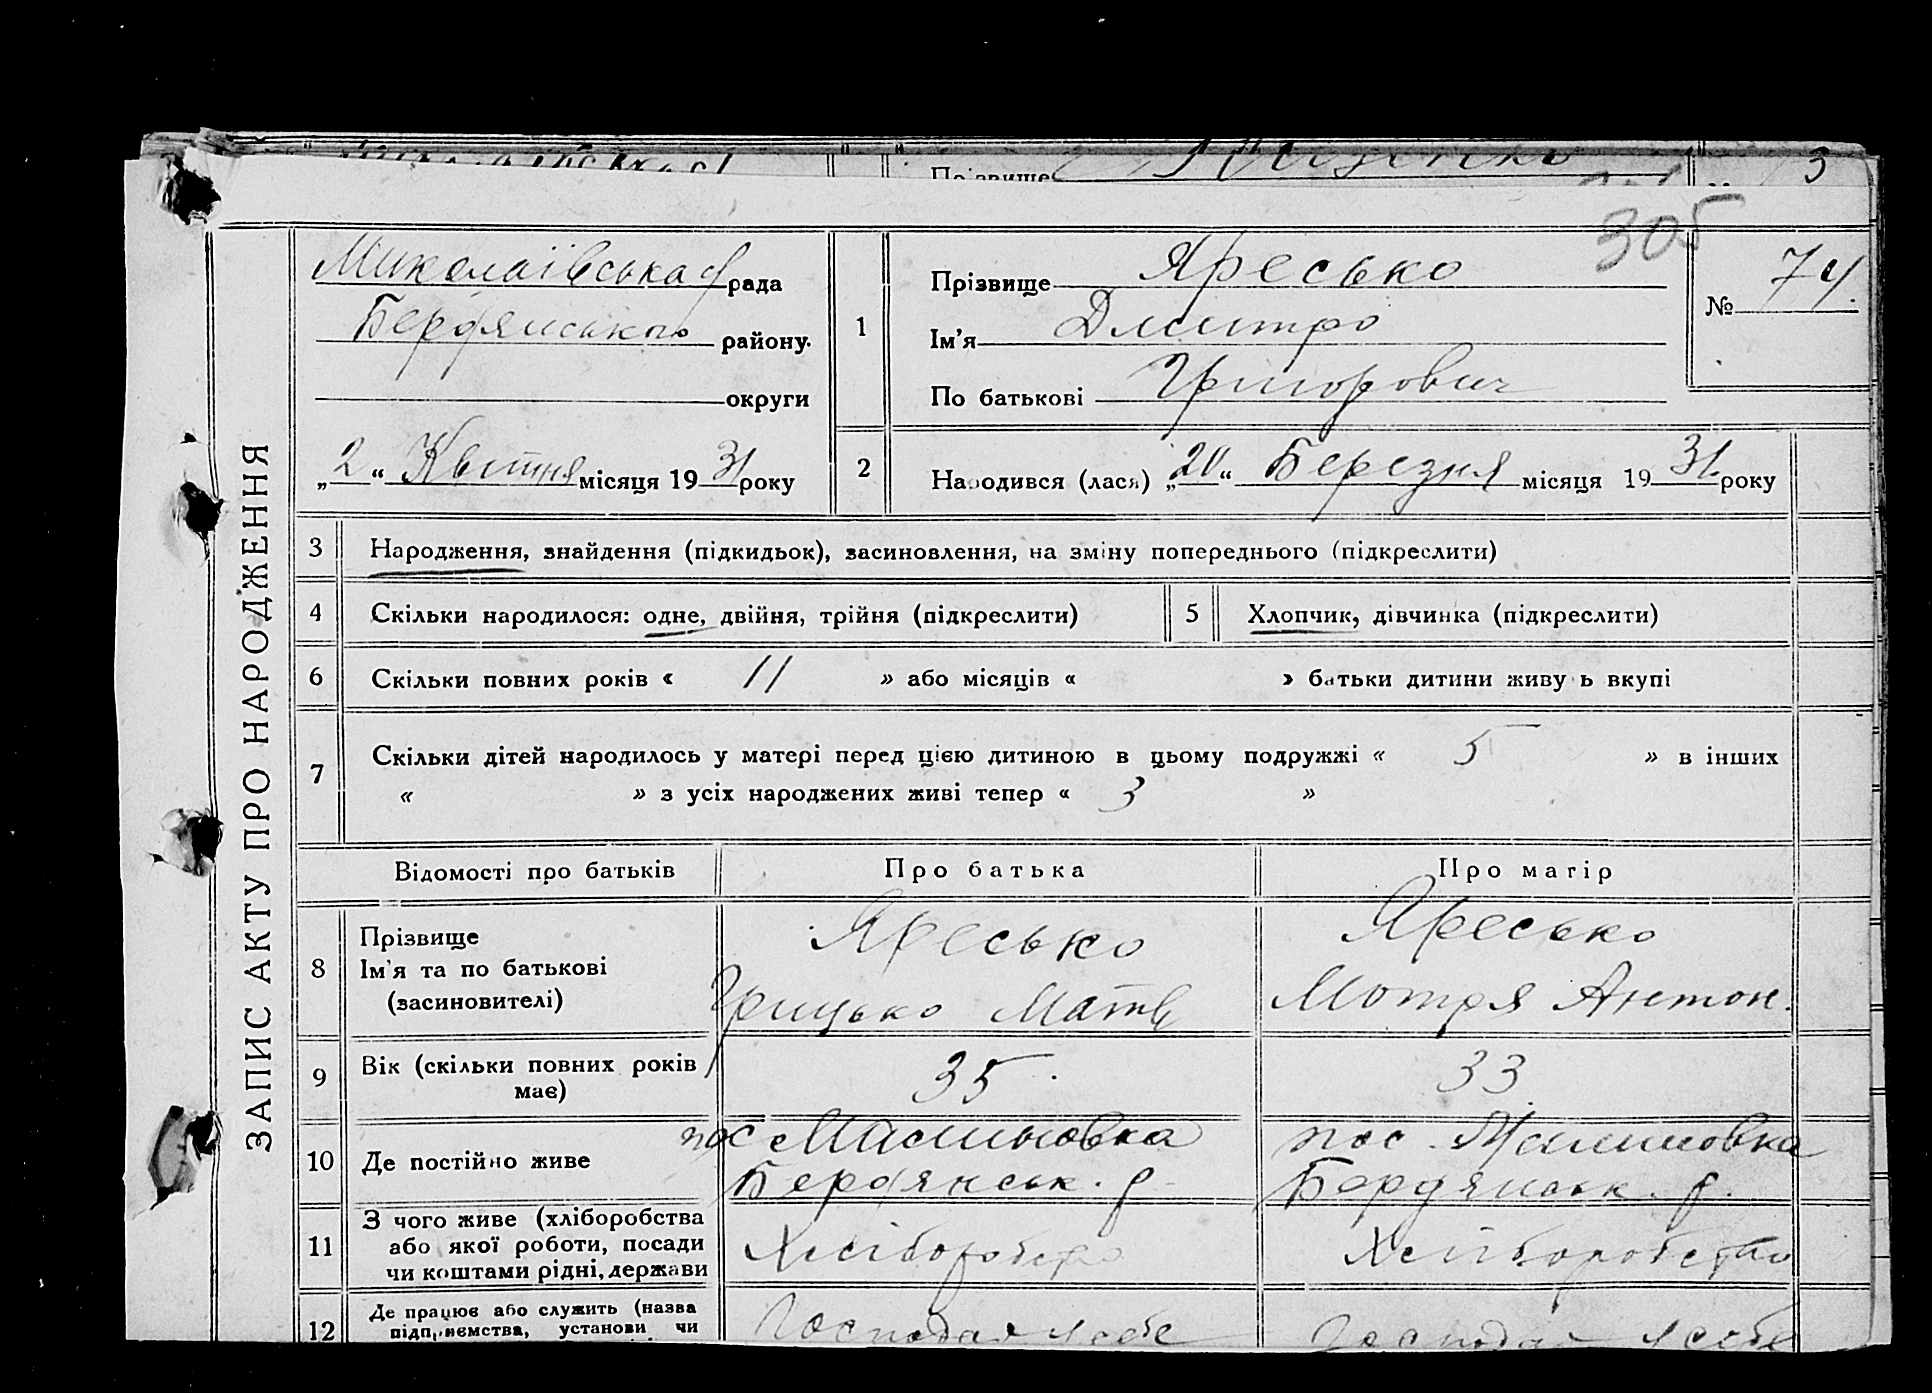 Прізвище
3
305
ЗАПИС АКТУ ПРО НАРОДЖЕННЯ
Миколаївська рада
Бердянського району
округи
„2“ Квітня місяця 1931 року
1
Прізвище Яресько
Ім'я Дмитро
По батькові Григорович
№ 74.
2
Народився (лася) „20“ Березня місяця 1931 року
3 Народження, знайдення (підкидьок), засиновлення, на зміну попереднього (підкреслити)
4 Скільки народилося: одне, двійня, трійня (підкреслити) 5 Хлопчик, дівчинка (підкреслити)
6 Скільки повних років « 11 » або місяців « » батьки дитини живуть вкупі
7 Скільки дітей народилось у матері перед цією дитиною в цьому подружжі « 5 » в інших
« » з усіх народжених живі тепер « 3 »
Відомості про батьків Про батька Про матір
8 Прізвище
Ім'я та по батькові
(засиновителі)
Яресько
Грицько Матв
Яресько
Мотря Антон.
9 Вік (скільки повних років
має)
35.
33
10 Де постійно живе
пос Малиновка
Бердянськ. р.
пос. Малиновка
Бердянськ. р.
11 З чого живе (хліборобства
або якої роботи, посади
чи коштами рідні, держави
Хліборобство
Хліборобство
12 Де працює або служить (назва
підприємства, установи чи